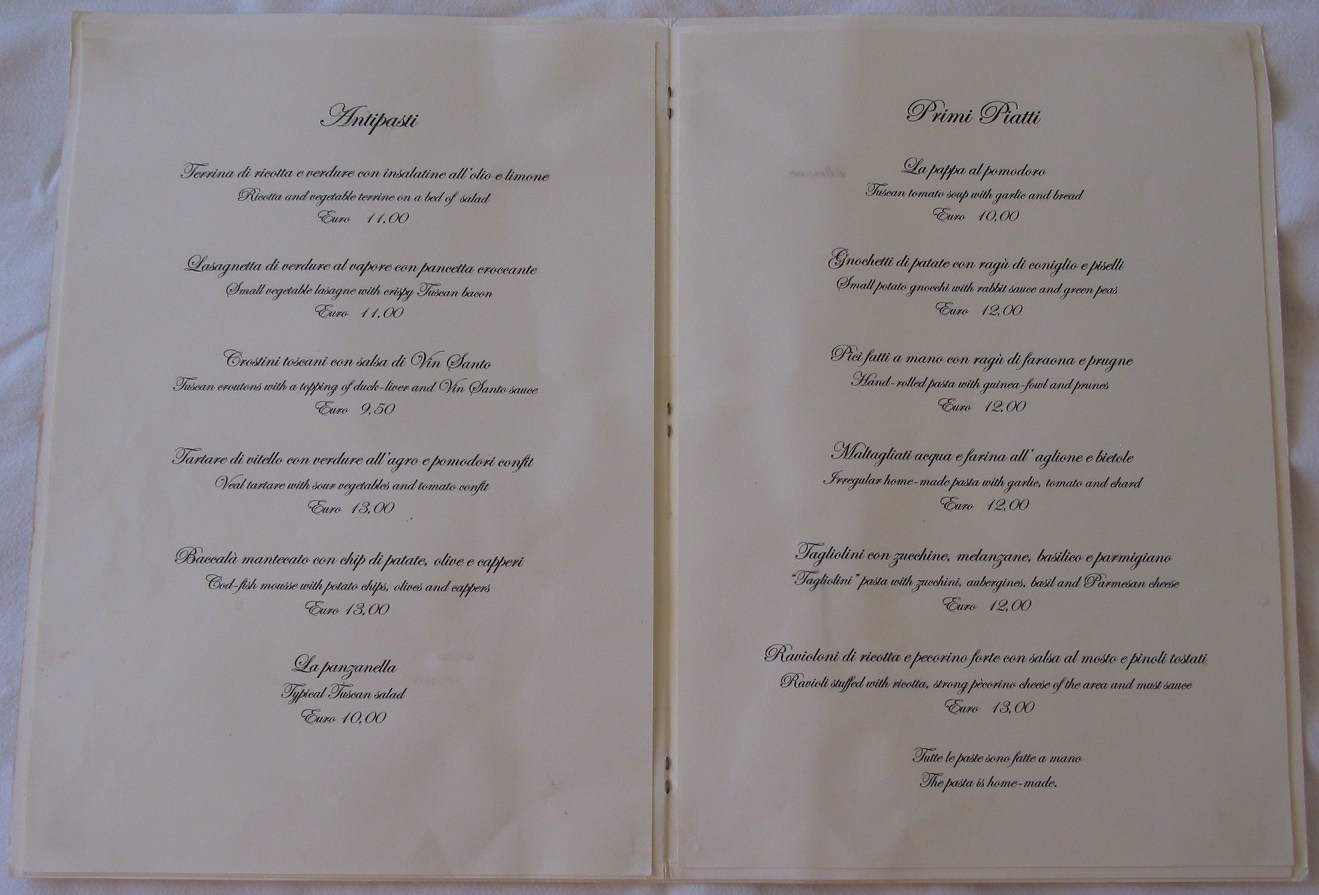 Antipasti
Terrina di ricotta e verdure con insalatine all'olio e limone
Ricotta and vegetable terrine on a bed of salad
Euro 11,00
Lasagnetta di verdure al vapore con pancetta croccante
Small vegetable lasagne with crispy Tuscan bacon
Euro 11,00
Crostini toscani con salsa di Vin Santo
Tuscan croutons with a topping of duck-liver and Vin Santo sauce
Euro 9,50
Tartare di vitello con verdure all'agro e pomodori confit
Veal tartare with sour vegetables and tomato confit
Euro 13,00
Baccalà mantecato con chip di patate, olive e capperi
Cod-fish mousse with potato chips, olives and cappers
Euro 13,00
La panzanella
Typical Tuscan salad
Euro 10,00
Primi Piatti
La pappa al pomodoro
Tuscan tomato soup with garlic and bread
Euro 10,00
Gnochetti di patate con ragù di coniglio e piselli
Small potato gnocchi with rabbit sauce and green peas
Euro 12,00
Pici fatti a mano con ragù di faraona e prugne
Hand-rolled pasta with guinea-fowl and prunes
Euro 12,00
Maltagliati acqua e farina all' aglione e bietole
Irregular home-made pasta with garlic, tomato and chard
Euro 12,00
Tagliolini con zucchine, melanzane, basilico e parmigiano
"Tagliolini" pasta with zucchini, aubergines, basil and Parmesan cheese
Euro 12,00
Ravioloni di ricotta e pecorino forte con salsa al mosto e pinoli tostati
Ravioli stuffed with ricotta, strong pècorino cheese of the area and must sauce
Euro 13,00
Tutte le paste sono fatte a mano
The pasta is home-made.